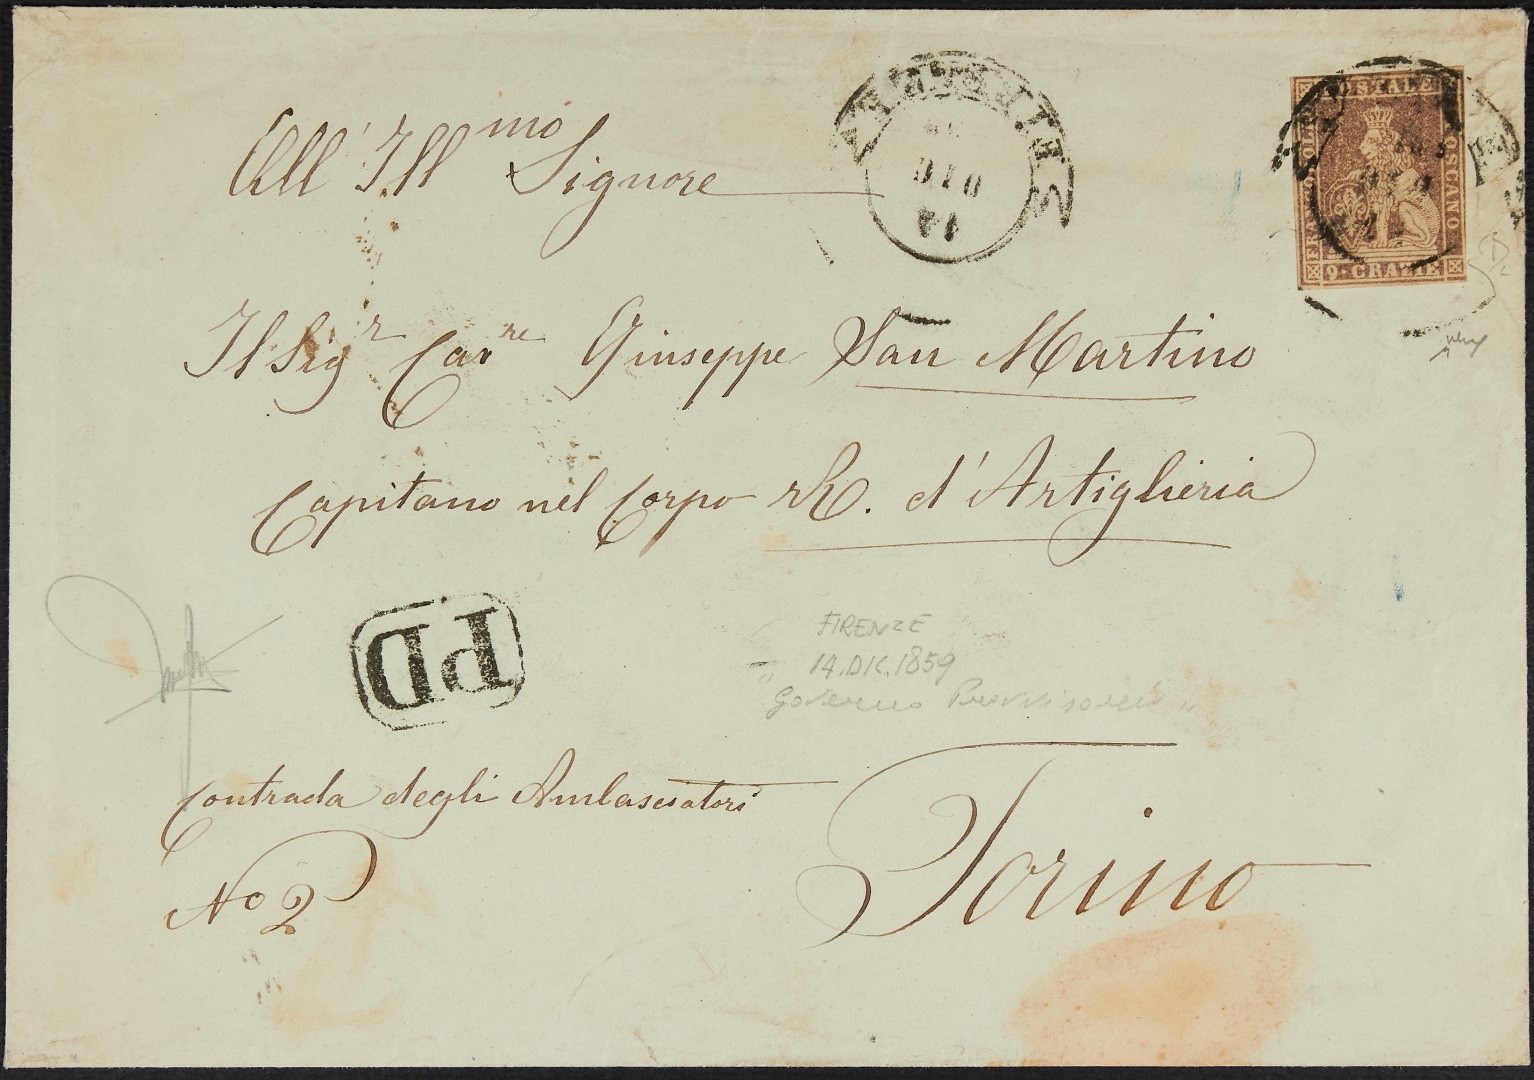 All' Ill.mo Signore
FIRENZE
14
DIC
FRANCOBOLLO POSTALE TOSCANO
9 CRAZIE
Il Sig.r Cav.re Giuseppe San Martino
Capitano nel Corpo R. d'Artiglieria
PD
FIRENZE
14.DIC.1859
Governo Provvisorio
Contrada degli Ambasciatori
No 2
Torino